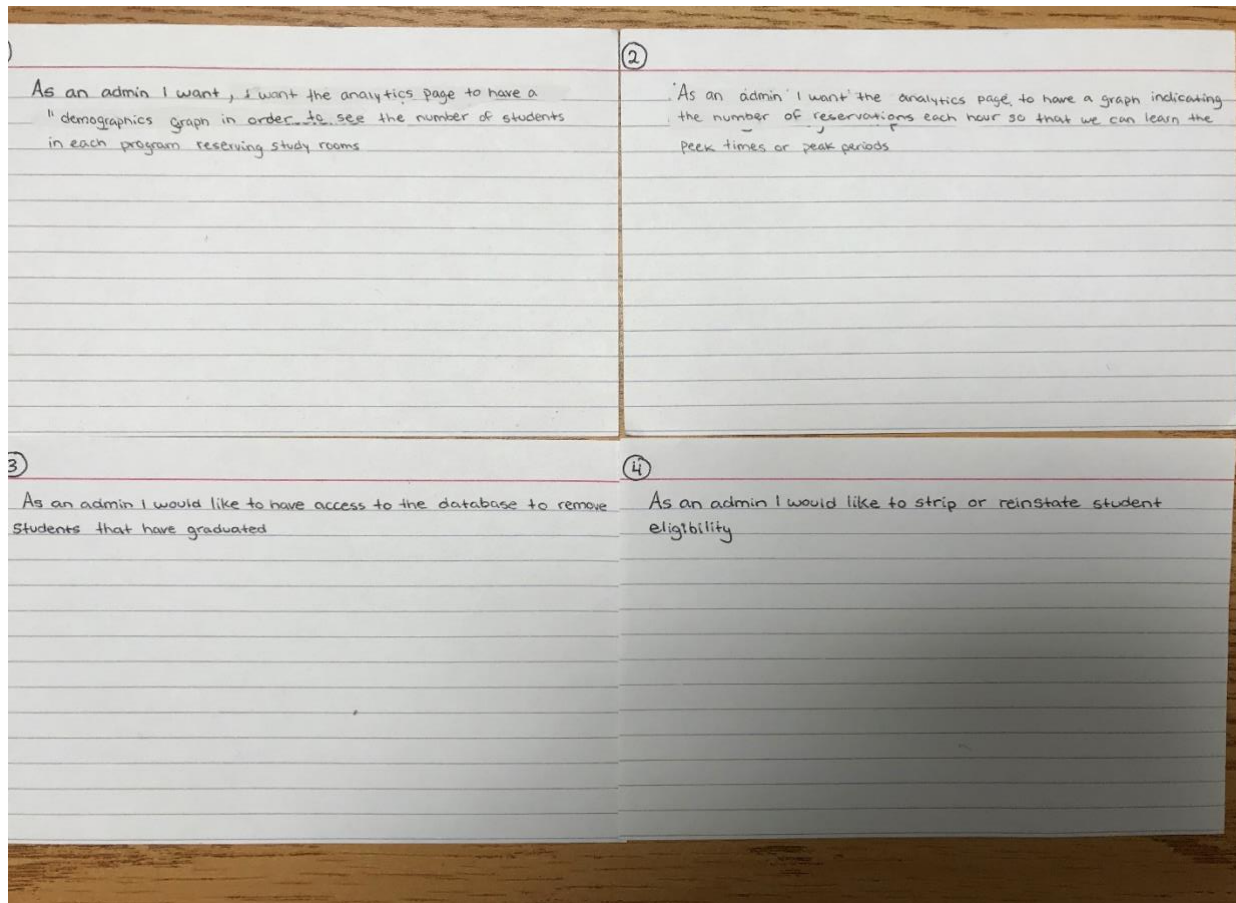 )
As an admin I want, I want the analytics page to have a
" demographics graph in order to see the number of students
in each program reserving study rooms
2
As an admin I want the analytics page, to have a graph indicating
the number of reservations each hour so that we can learn the
peek times or peak periods
3
As an admin I would like to have access to the database to remove
students that have graduated
4
As an admin I would like to strip or reinstate student
eligibility